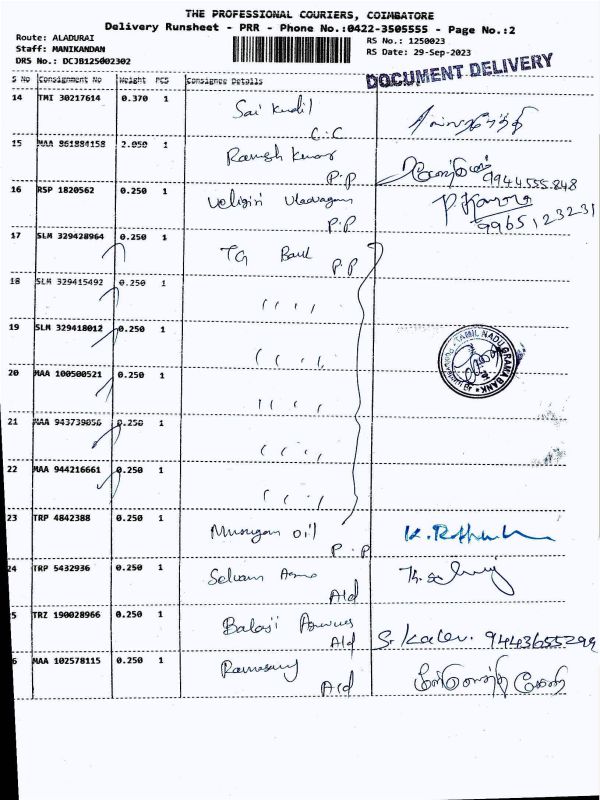 THE PROFESSIONAL COURIERS, COIMBATORE
Delivery Runsheet - PRR - Phone No.:0422-3505555 - Page No.:2
Route: ALADURAI
Staff: MANIKANDAN
DRS No.: DCJB125002302
RS No.: 1250023
RS Date: 29-Sep-2023
DOCUMENT DELIVERY
S No Consignment No Weight PCS Consignee Details
14 TMI 30217614 0.370 1 Sai
C.C
15 MAA 861884158 2.050 1 Ramesh Kumar
P.P
9944555848
16 RSP 1820562 0.250 1
P.P
9965123231
17 SLM 329428964 0.250 1
P.P
18 SLM 329415492 0.250 1 ,, ,,
19 SLM 329418012 0.250 1 ,, ,,
TAMIL NADU GRAMA BANK
20 MAA 100500521 0.250 1 ,, ,,
21 MAA 943739056 0.250 1 ,, ,,
22 MAA 944216661 0.250 1 ,, ,,
23 TRP 4842388 0.250 1 Murugan oil
P.P
24 TRP 5432936 0.250 1 Selvam
Ald
5 TRZ 190028966 0.250 1 Balaji
Ald
9443655299
6 MAA 102578115 0.250 1 Ramasamy
Ald